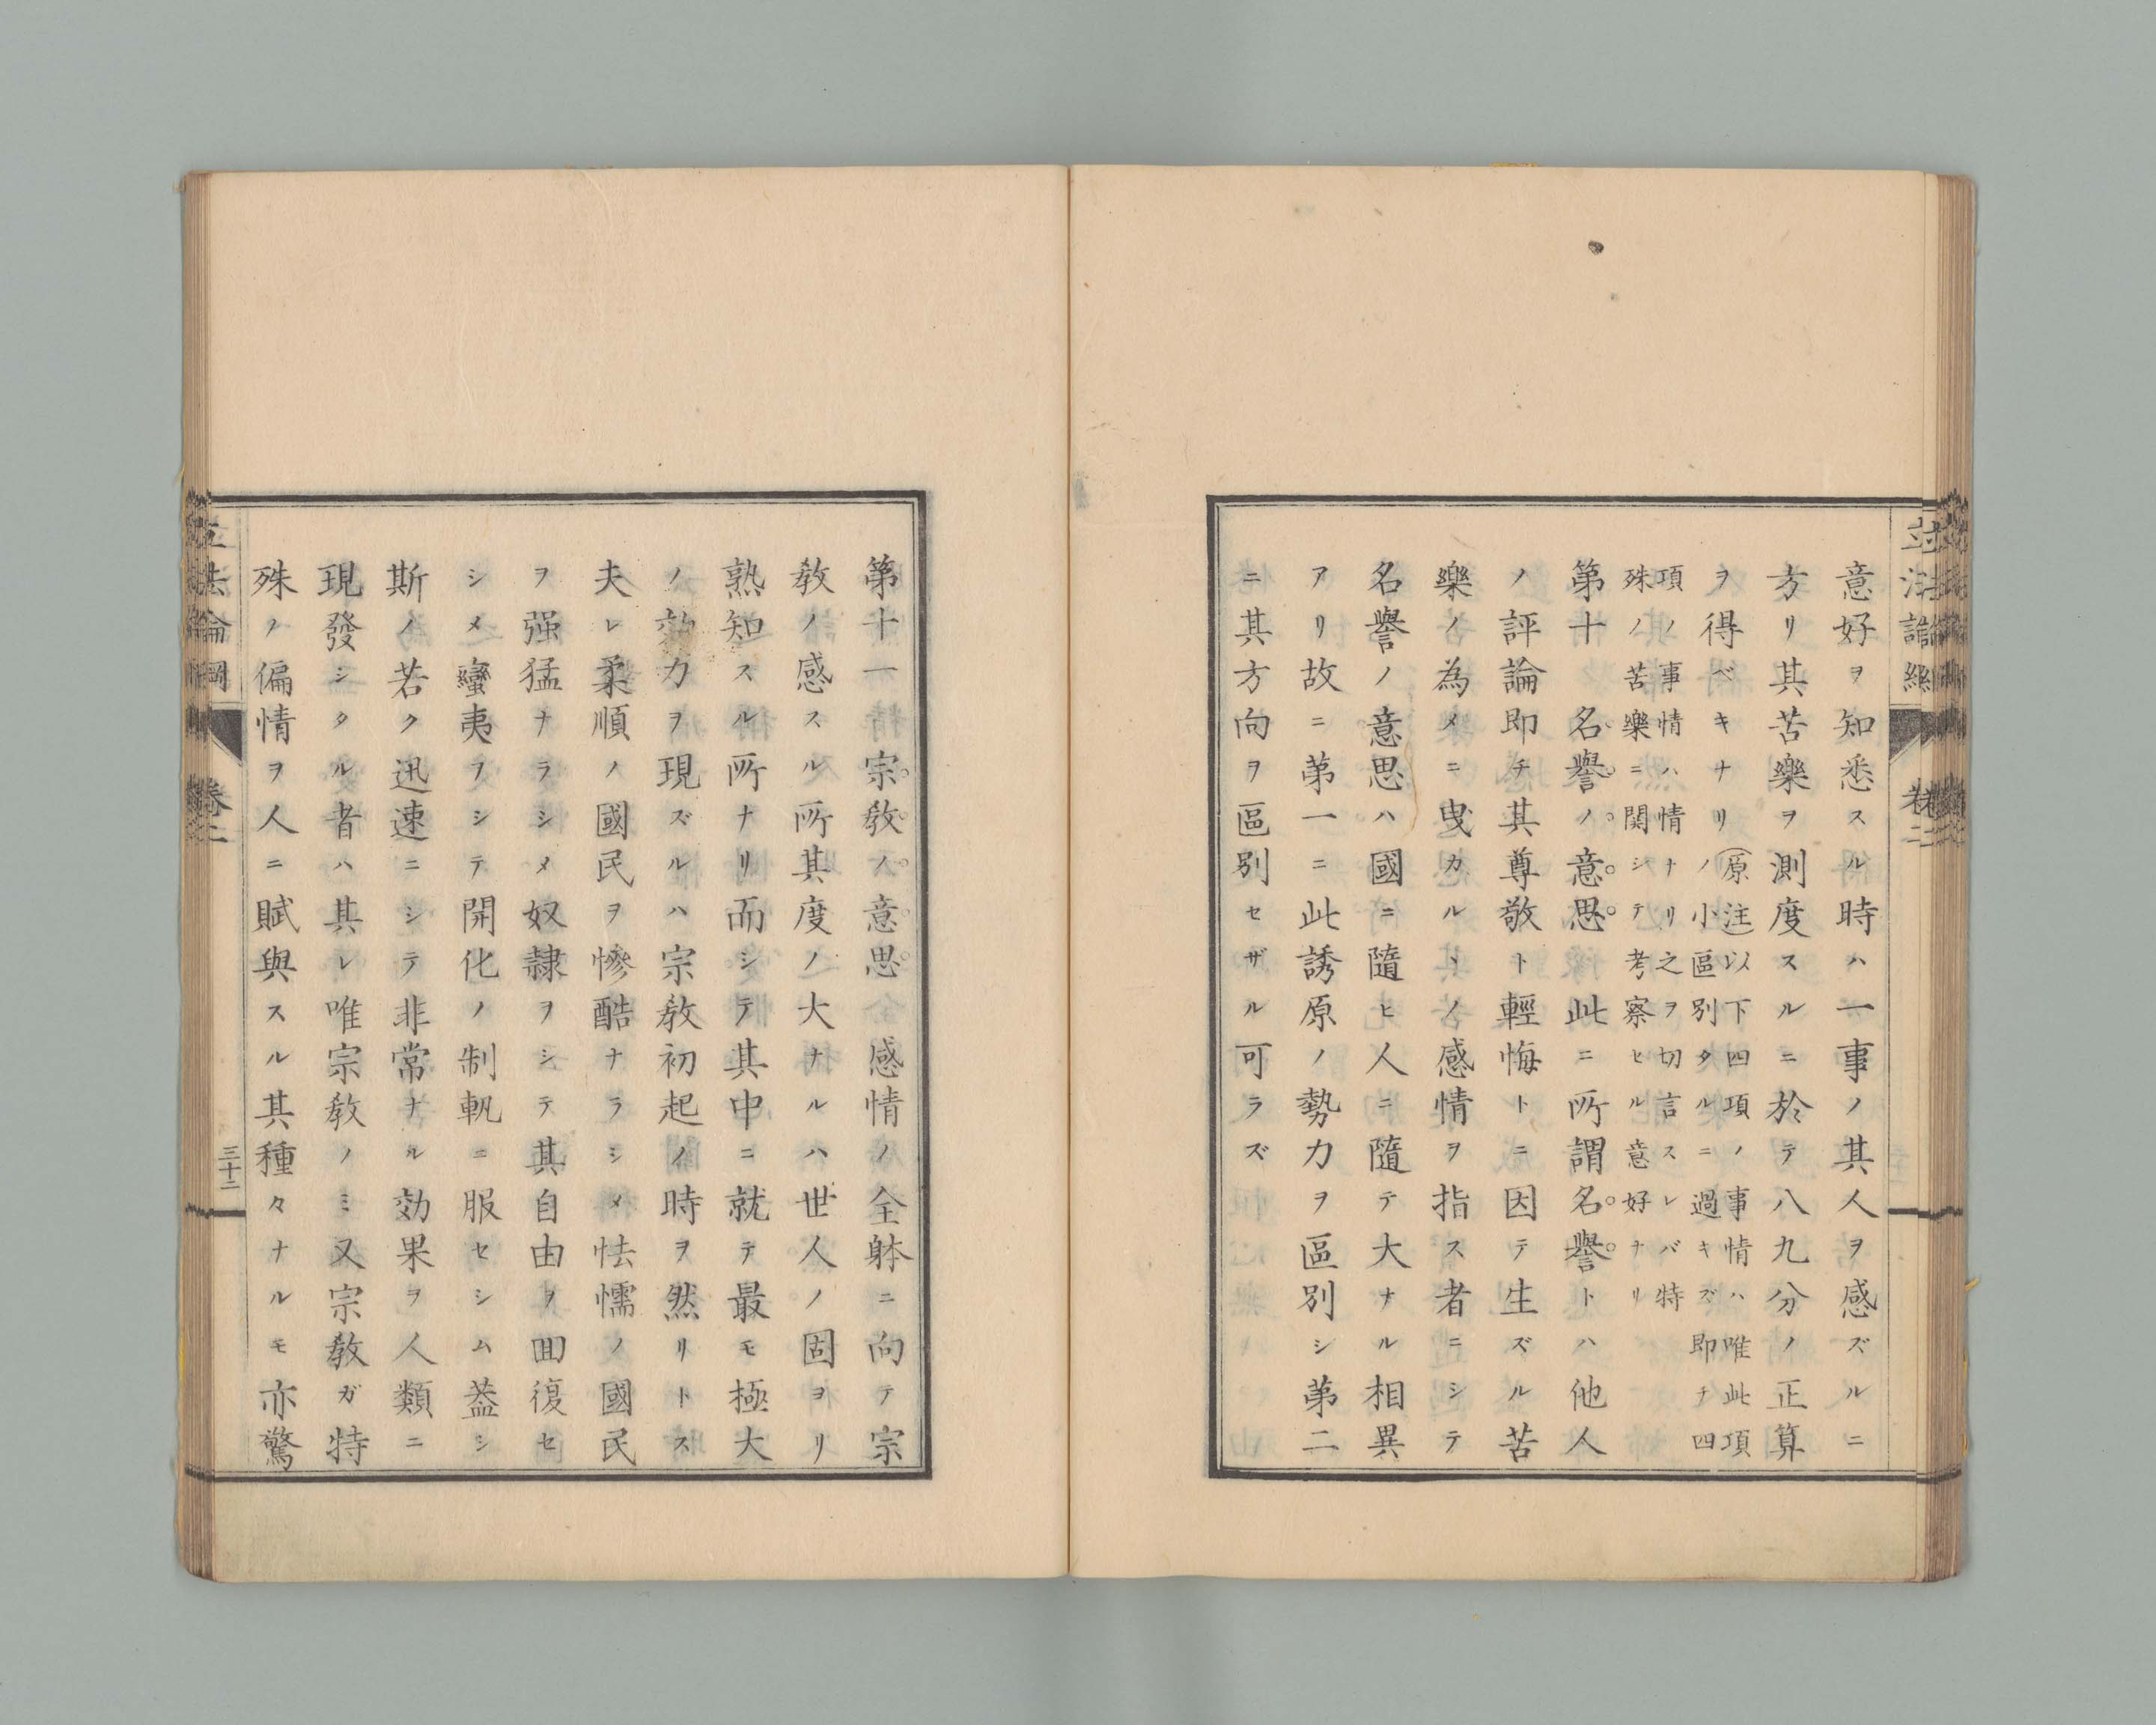 意好ヲ知悉スル時ハ一事ノ其人ヲ感ズルニ
方リ其苦樂ヲ測度スルニ於テ八九分ノ正算
ヲ得ベキナリ(原注)以下四項ノ事情ハ唯此項
ノ小區別タルニ過キズ即チ四
項ノ事情ハ情ナリ之ヲ切言スレバ特
殊ノ苦樂ニ関シテ考察セル意好ナリ
第十 名譽ノ意思 此ニ所謂名譽トハ他人
ノ評論即チ其尊敬ト輕悔トニ因テ生ズル苦
樂ノ為メニ曳カルヽノ感情ヲ指ス者ニシテ
名譽ノ意思ハ國ニ隨ヒ人ニ隨テ大ナル相異
アリ故ニ第一ニ此誘原ノ勢力ヲ區別シ第二
ニ其方向ヲ區別セザル可ラズ
第十一 宗教ノ意思 感情ノ全躰ニ向テ宗
教ノ感スル所其度ノ大ナルハ世人ノ固ヨリ
熟知スル所ナリ而シテ其中ニ就テ最モ極大
ノ効力ヲ現ズルハ宗教初起ノ時ヲ然リトス
夫レ柔順ノ國民ヲ慘酷ナラシメ怯懦ノ國民
ヲ强猛ナラシメ奴隷ヲシテ其自由ヲ回復セ
シメ蠻夷ヲシテ開化ノ制軌ニ服セシム葢シ
斯ノ若ク迅速ニシテ非常ナル効果ヲ人類ニ
現發シタル者ハ其レ唯宗教ノミ又宗教ガ特
殊ノ偏情ヲ人ニ賦與スル其種々ナルモ亦驚
立法論綱
卷二
三十二